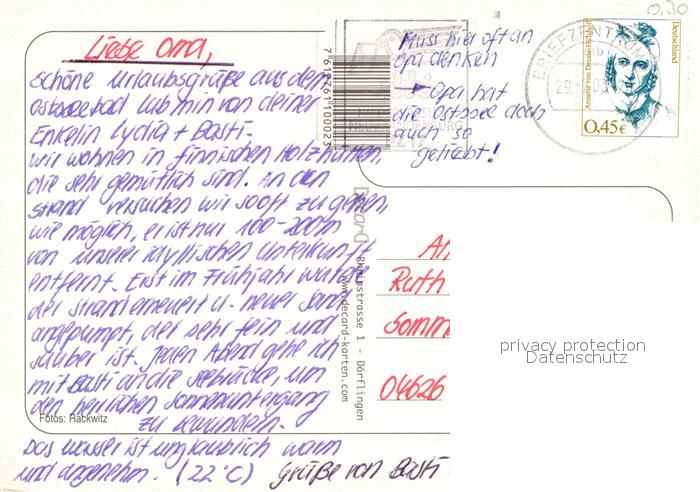 Liebe Oma,
schöne Urlaubsgrüße aus dem
Ostseebad Lubmin von deiner
Enkelin Lydia + Basti.
Wir wohnen in finnischen Holzhütten,
die sehr gemütlich sind. An den
Strand versuchen wir so oft zu gehen,
wie möglich, er ist nur 100-200m
von unserer idyllischen Unterkunft
entfernt. Erst im Frühjahr wurde
der Strand erneuert u. neuer Sand
angepumpt, der sehr fein und
sauber ist. Jeden Abend gehe ich
mit Basti an die Seebrücke, um
den herrlichen Sonnenuntergang
zu bewundern.
Das Wasser ist unglaublich warm
und angenehm. (22°C) Grüße von Basti
Fotos: Rackwitz
Muss hier oft an
Opa denken
→ Opa hat
die Ostsee doch
auch so
geliebt!
7612161100023
Decard Rheinstrasse 1 - Dörflingen
www.decard-karten.com
BRIEFZENTRUM
29.
Deutschland
Annette von Droste-Hülshoff
0,45€
0,30
An
Ruth
Somm
04626
privacy protection
Datenschutz